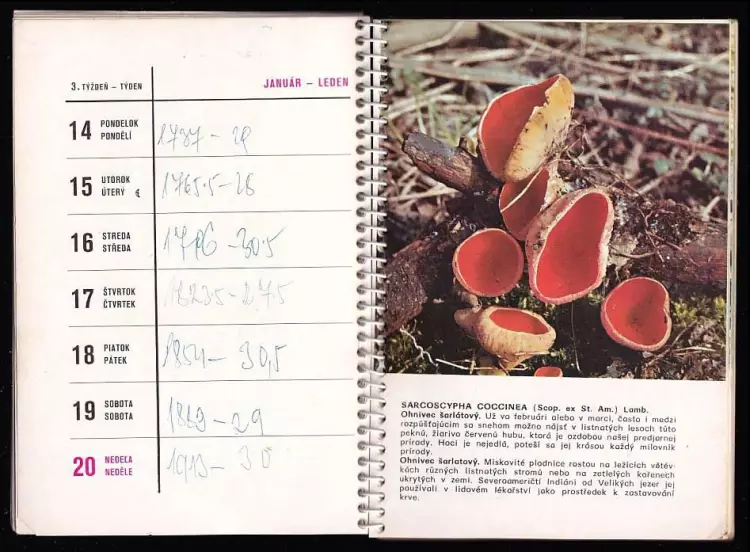 3. TÝŽDEŇ – TÝDEN
JANUÁR – LEDEN
14 PONDELOK
PONDĚLÍ
15 UTOROK
ÚTERÝ
1765.5-26
16 STREDA
STŘEDA
-30.5
17 ŠTVRTOK
ČTVRTEK
18 PIATOK
PÁTEK
1854- 30,5
19 SOBOTA
SOBOTA
-29
20 NEDEĽA
NEDĚLE
1913- 30
SARCOSCYPHA COCCINEA (Scop. ex St. Am.) Lamb.
Ohnivec šarlátový. Už vo februári alebo v marci, často i medzi
rozpúšťajúcim sa snehom možno nájsť v listnatých lesoch túto
peknú, žiarivo červenú hubu, ktorá je ozdobou našej predjarnej
prírody. Hoci je nejedlá, poteší sa jej krásou každý milovník
prírody.
Ohnivec šarlatový. Miskovité plodnice rostou na ležících větév-
kách různých listnatých stromů nebo na zetlelých kořenech
ukrytých v zemi. Severoameričtí Indiáni od Velikých jezer jej
používali v lidovém lékařství jako prostředek k zastavování
krve.